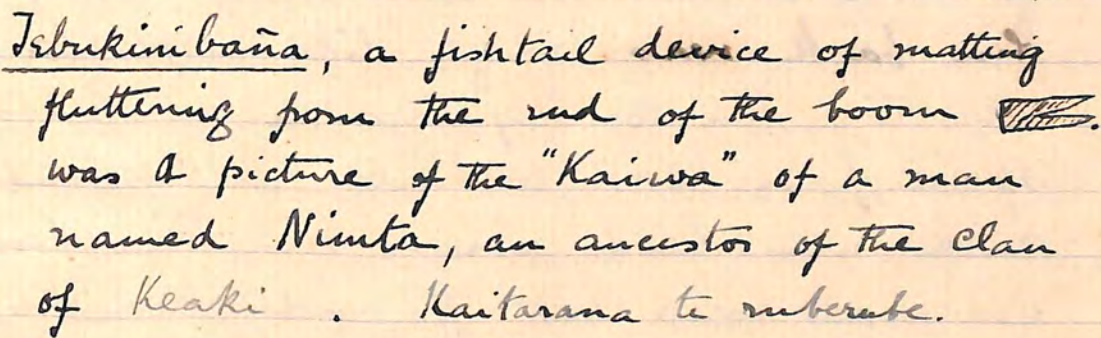 Tebukinibaña, a fishtail device of matting
fluttering from the end of the boom
was a picture of the "Kaiwa" of a man
named Nimta, an ancestor of the clan
of Keaki . Kaitarana te ruberube.